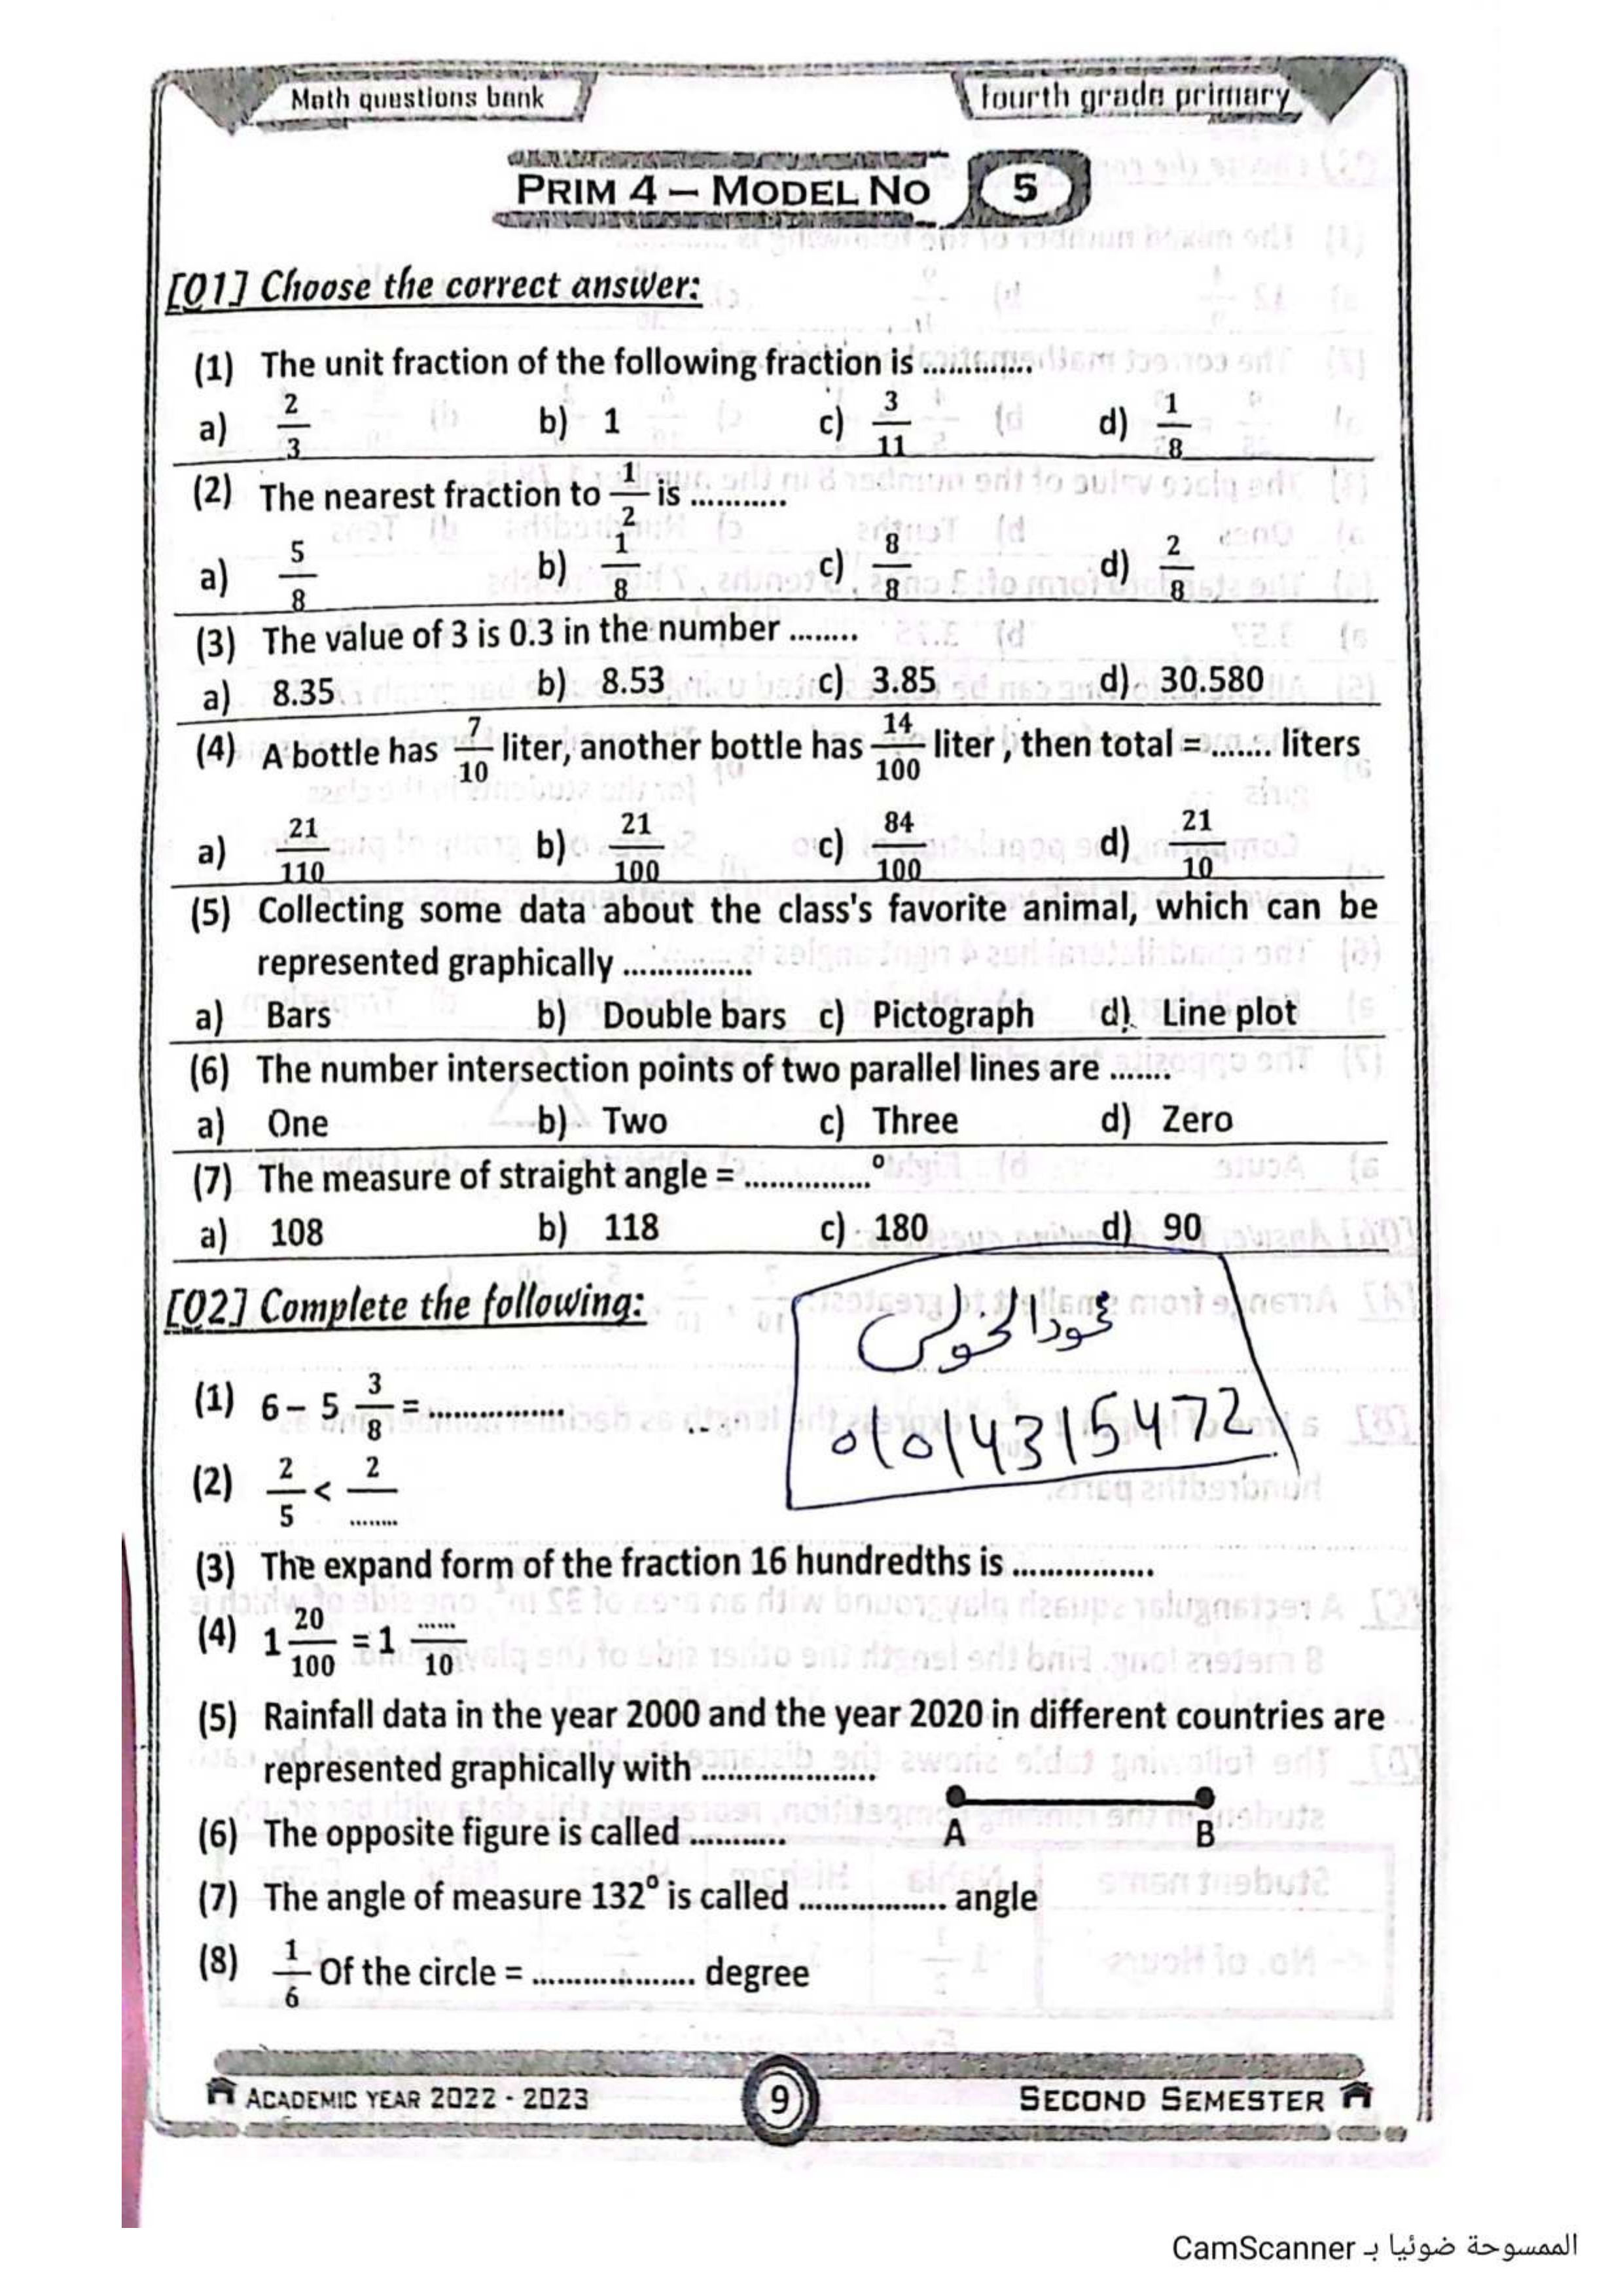 Math questions bank
fourth grade primary
PRIM 4 – MODEL NO 5
[Q1] Choose the correct answer:
(1) The unit fraction of the following fraction is .............
a) 2/3 b) 1 c) 3/11 d) 1/8
(2) The nearest fraction to 1/2 is ...........
a) 5/8 b) 1/8 c) 8/8 d) 2/8
(3) The value of 3 is 0.3 in the number ........
a) 8.35 b) 8.53 c) 3.85 d) 30.580
(4) A bottle has 7/10 liter, another bottle has 14/100 liter, then total = ....... liters
a) 21/110 b) 21/100 c) 84/100 d) 21/10
(5) Collecting some data about the class's favorite animal, which can be
represented graphically ...............
a) Bars b) Double bars c) Pictograph d) Line plot
(6) The number intersection points of two parallel lines are .......
a) One b) Two c) Three d) Zero
(7) The measure of straight angle = ...............°
a) 108 b) 118 c) 180 d) 90
[Q2] Complete the following:
01014315472
(1) 6 – 5 3/8 = ................
(2) 2/5 < 2/........
(3) The expand form of the fraction 16 hundredths is ................
(4) 1 20/100 = 1 ....../10
(5) Rainfall data in the year 2000 and the year 2020 in different countries are
represented graphically with .....................
(6) The opposite figure is called ...........
A B
(7) The angle of measure 132° is called ................. angle
(8) 1/6 Of the circle = ................... degree
ACADEMIC YEAR 2022 - 2023
9
SECOND SEMESTER
الممسوحة ضوئيا بـ CamScanner